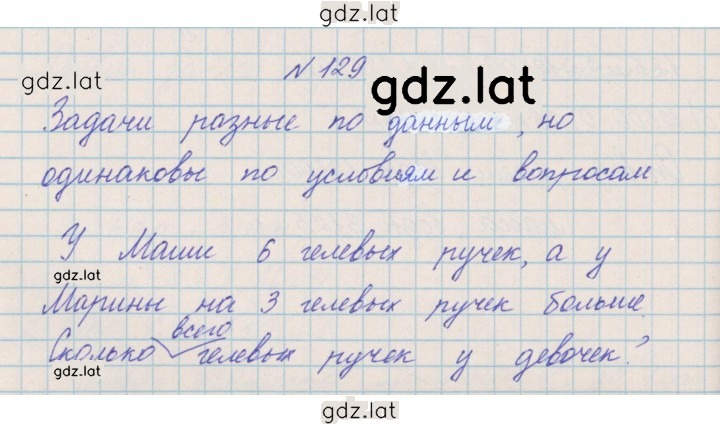 gdz.lat
№ 129
gdz.lat
gdz.lat
Задачи разные по данным, но
одинаковы по условиям и вопросам
У Маши 6 гелевых ручек, а у
gdz.lat
Марины на 3 гелевых ручек больше.
всего
Сколько гелевых ручек у девочек?
gdz.lat
gdz.lat